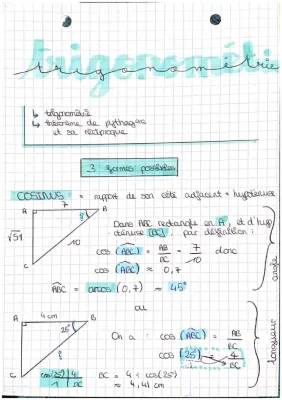 trigonométrie
↳ trigonométrie
↳ théorème de pythagore
et sa réciproque
3 formes possibles
COSINUS = rapport de son côté adjacent ÷ hypoténuse
A 7 B
√51
10
C
Dans ABC rectangle en A, et d'hyp
oténuse [BC], par définition :
cos (ABC) = AB/BC = 7/10 donc
cos (ABC) ≈ 0,7
ABC = arccos (0,7) ≈ 45°
angle
ou
A 4 cm B
25°
?
C
On a : cos (ABC) = AB/BC
cos (25) = 4/BC
cos(25) 4
1 BC
BC = 4 ÷ cos(25)
≈ 4,41 cm
longueur